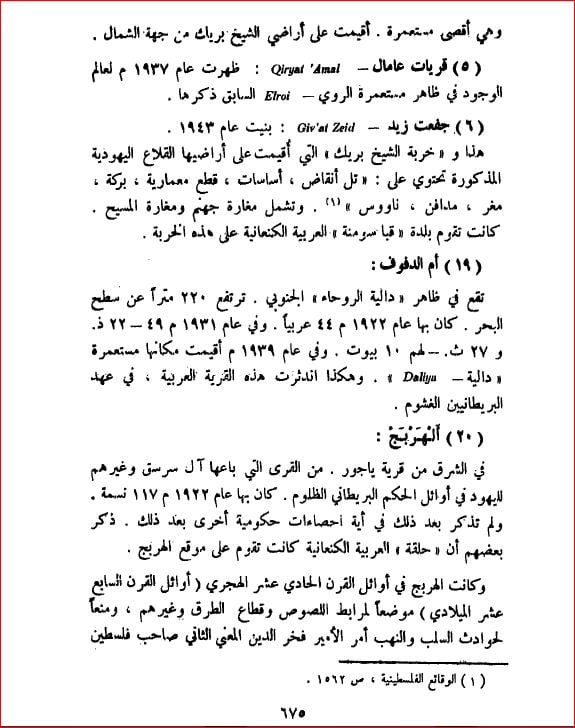 وهي أقصى مستعمرة . أقيمت على أراضي الشيخ بريك من جهة الشمال .
(٥) قريات عامال – Qiryat 'Amal : ظهرت عام ١٩٣٧ م لعالم
الوجود في ظاهر مستعمرة الروي – Elroi السابق ذكرها .
(٦) جفعت زيد – Giv'at Zeid : بنيت عام ١٩٤٣ .
هذا و « خربة الشيخ بريك » التي أُقيمت على أراضيها القلاع اليهودية
المذكورة تحتوي على : « تل أنقاض ، أساسات ، قطع معمارية ، بركة ،
مغر ، مدافن ، ناووس » (١) . وتشمل مغارة جهنم ومغارة المسيح .
كانت تقوم بلدة « قبا سومنة » العربية الكنعانية على هذه الخربة .
(١٩) أم الدفوف :
تقع في ظاهر « دالية الروحاء » الجنوبي . ترتفع ٢٢٠ متراً عن سطح
البحر . كان بها عام ١٩٢٢ م ٤٤ عربياً . وفي عام ١٩٣١ م ٤٩ – ٢٢ ذ.
و ٢٧ ث. – لهم ١٠ بيوت . وفي عام ١٩٣٩ م أقيمت مكانها مستعمرة
« دالية – Daliya » . وهكذا اندثرت هذه القرية العربية ، في عهد
البريطانيين الغشوم .
(٢٠) أَلْهَرْبَجْ :
في الشرق من قرية ياجور . من القرى التي باعها آل سرسق وغيرهم
لليهود في أوائل الحكم البريطاني الظلوم . كان بها عام ١٩٢٢ م ١١٧ نسمة .
ولم تذكر بعد ذلك في أية احصاءات حكومية أخرى بعد ذلك . ذكر
بعضهم أن « حلقة » العربية الكنعانية كانت تقوم على موقع الهربج .
وكانت الهربج في أوائل القرن الحادي عشر الهجري ( أوائل القرن السابع
عشر الميلادي ) موضعاً لمرابط اللصوص وقطاع الطرق وغيرهم ، ومنعاً
لحوادث السلب والنهب أمر الأمير فخر الدين المعني الثاني صاحب فلسطين
(١) الوقائع الفلسطينية ، ص ١٥٦٢ .
٦٧٥